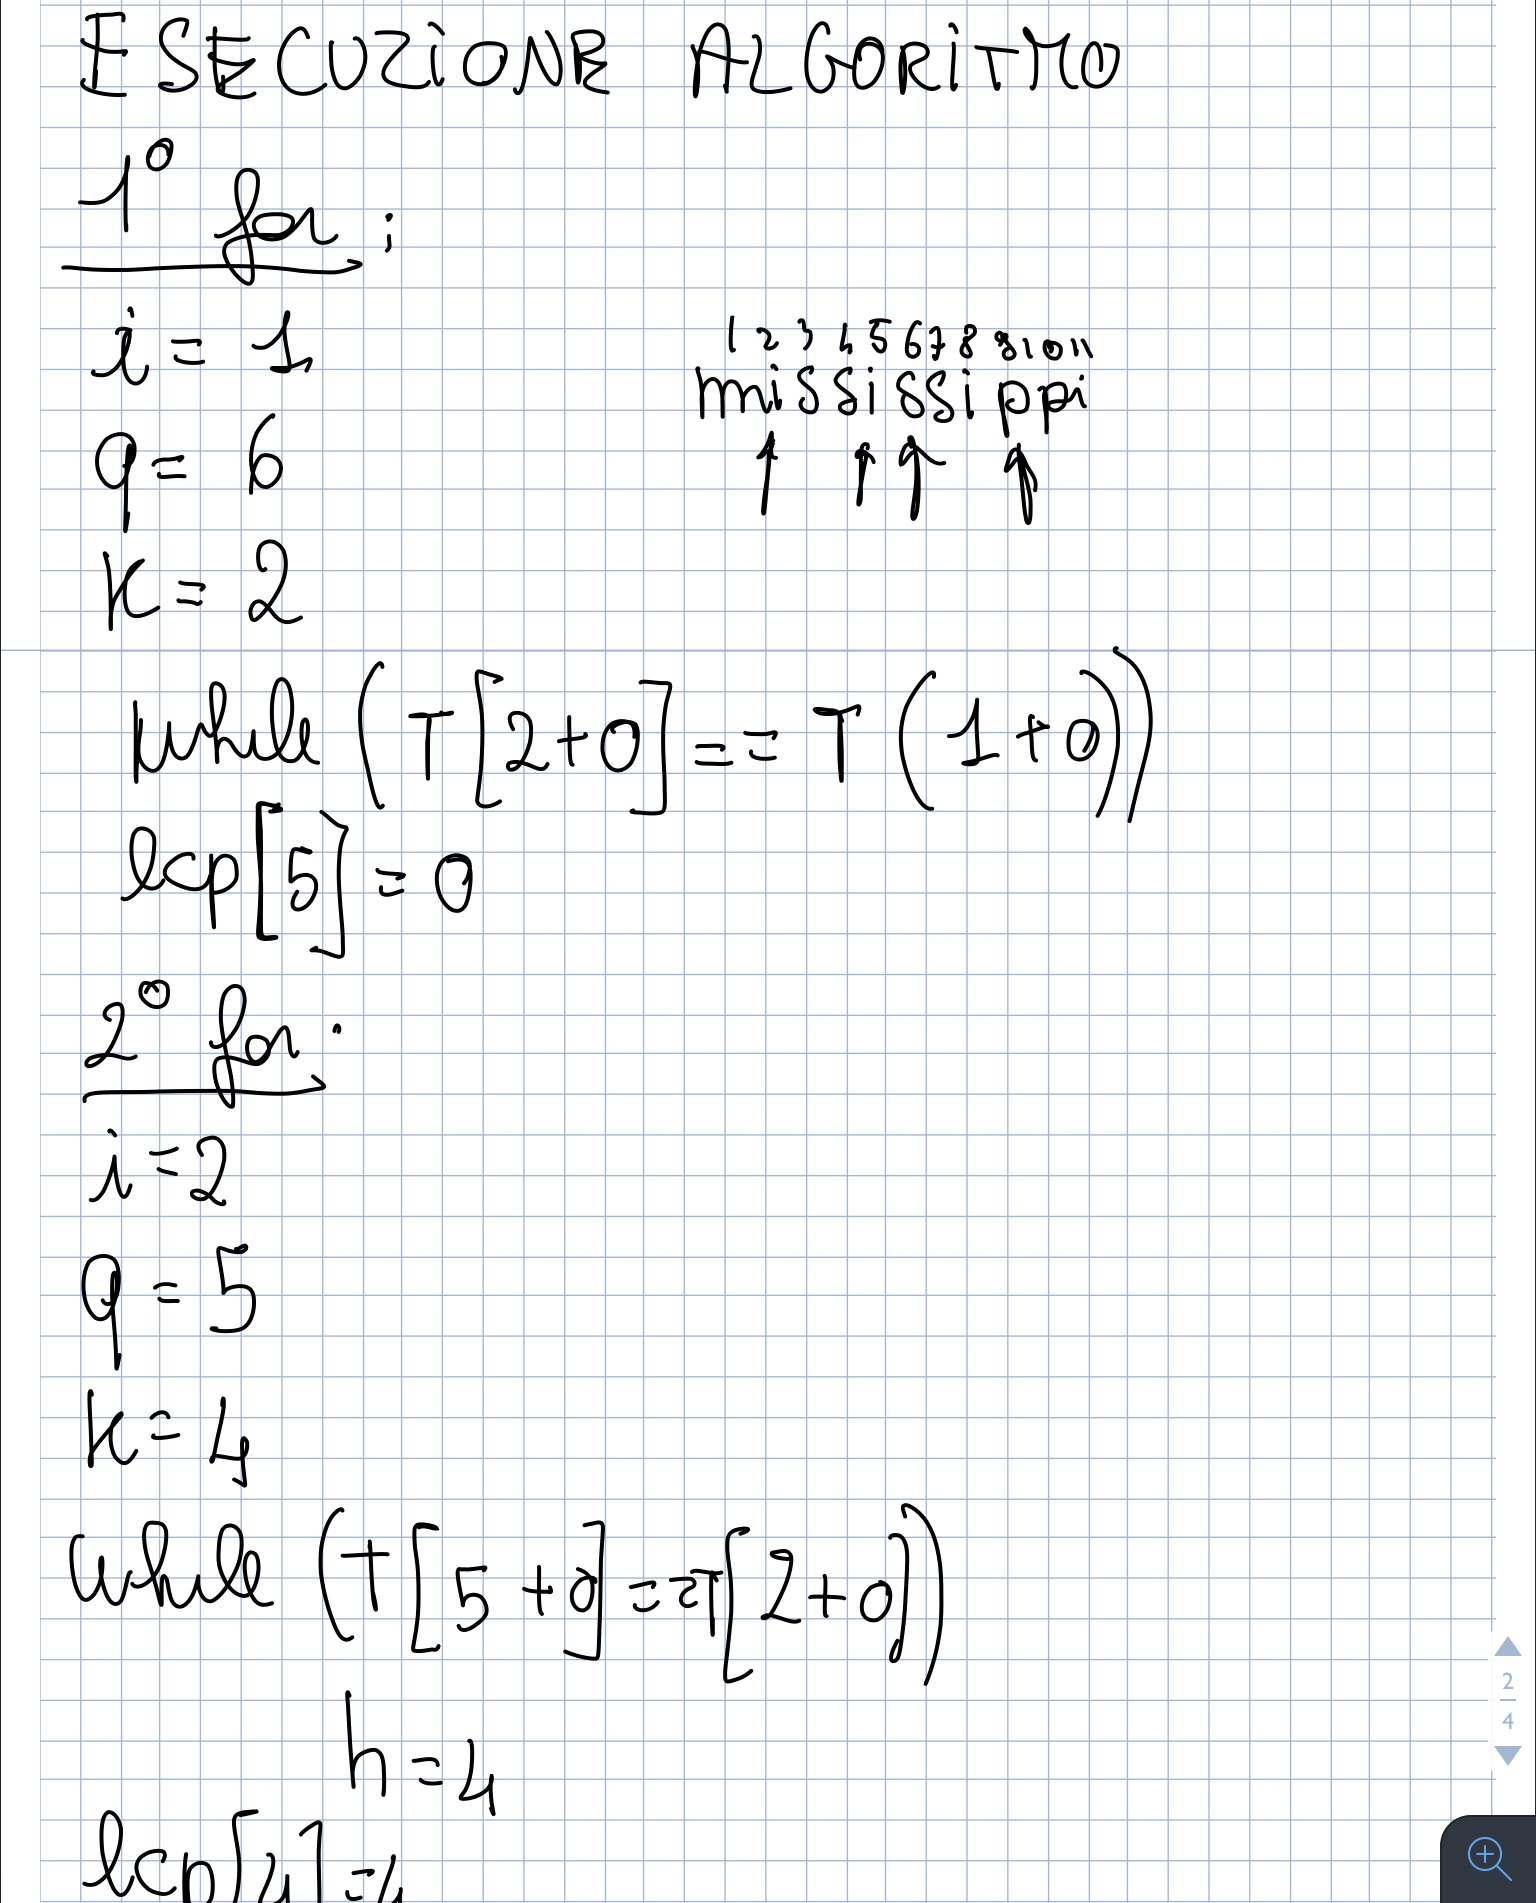 ESECUZIONE ALGORITMO
1° for:
i = 1
1 2 3 4 5 6 7 8 9 10 11
mississippi
q = 6
k = 2
while (T[2+0] == T(1+0))
lcp[5] = 0
2° for:
i = 2
q = 5
k = 4
while (T[5+0] == T[2+0])
h = 4
lcp[4] = 4
2
4